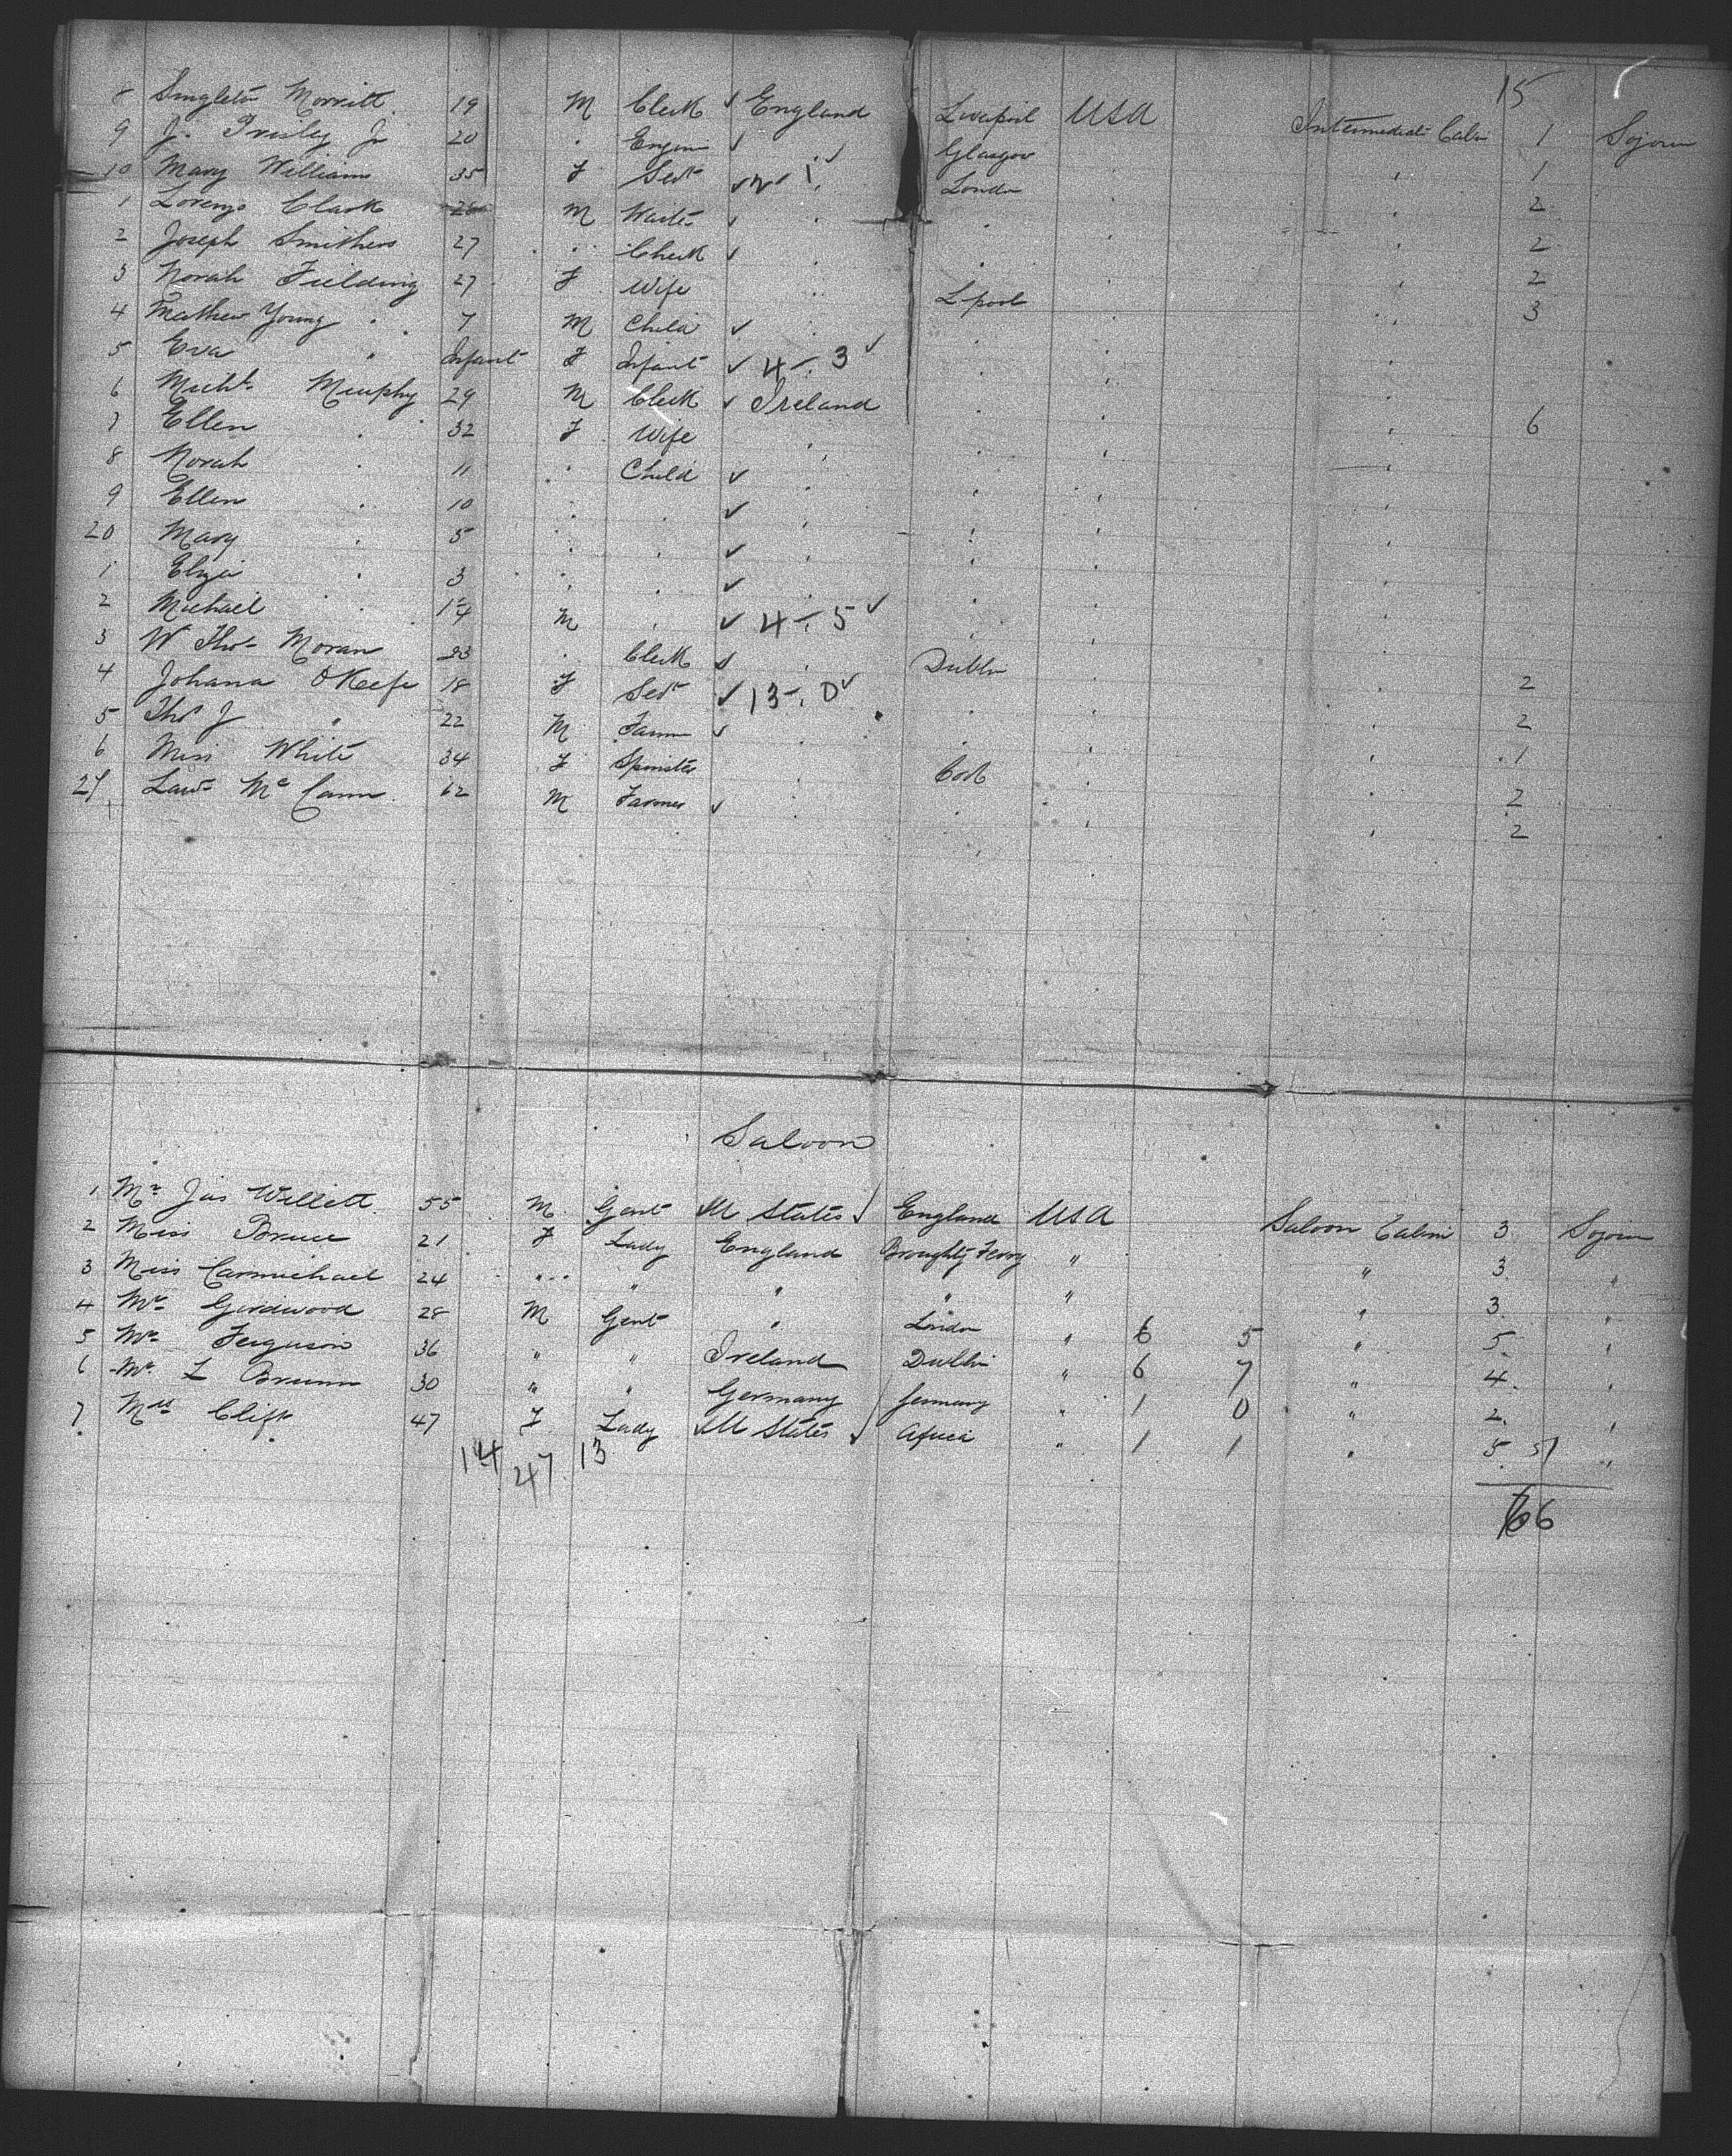 15
8 Singleton Morritt 19 M Clerk ✓ England Liverpool USA Intermediate Cabin 1 Sojourn
9 J. Prisley Jr 20 " ✓ Glasgow " 1
10 Mary Williams 35 F Sert ✓ London " 2
1 Lorenzo Clark 26 M Waiter ✓ " " " " 2
2 Joseph Smithers 27 " Clerk ✓ " " " " 2
3 Norah Fielding 27 F Wife " L'pool " " 3
4 Mathew Young " 7 M Child ✓ " " " "
5 Eva " Infant F Infant ✓ 4-3 ✓ " " "
6 Michl. Murphy 29 M Clerk ✓ Ireland " " " 6
7 Ellen " 32 F Wife " " " "
8 Norah " 11 " Child ✓ " " " "
9 Ellen " 10 " " ✓ " " " "
20 Mary " 5 " " ✓ " " " "
1 Eliza " 3 " " ✓ " " " "
2 Michael " 1 M " ✓ 4-5 ✓ " " "
3 W Thos Moran 23 " Clerk ✓ " Dublin " " 2
4 Johana O'Keefe 18 F Sert ✓ 13-0 ✓ " " " 2
5 Thos J " 22 M Farmer ✓ " " " 1
6 Miss White 34 F Spinster " Cork " " 2
27 Lawr McCann 62 M Farmer ✓ " " " " 2
Saloon
1 Mr Jas Willett 55 M Gent U States England USA Saloon Cabin 3 Sojourn
2 Miss Bruce 21 F Lady England Broughty Ferry " " 3 "
3 Miss Carmichael 24 " " " " " " 3 "
4 Mr Girdwood 28 M Gent " London " 6 5 " 5 "
5 Mr Ferguson 36 " " Ireland Dublin " 6 7 " 4 "
6 Mr L Brumm 30 " " Germany Germany " 1 0 " 2 "
7 Mrs Clift 47 F Lady U States Africa " 1 1 " 5 51 "
14 47 13
66